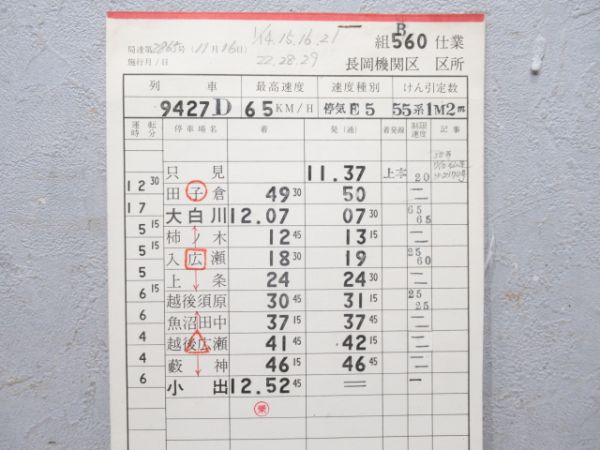 1/14.15.16.21 B
局達第2865号(11月16日) 組560 仕業
施行月/日 22.28.29 長岡機関区 区所
列 車 最高速度 速度種別 けん引定数
9427D 65KM/H 停気E5 55系1M2
運転時分 停車場名 着 発(通) 着発線 制限速度 記事
只見 11.37 上本 20
12 30
田子倉 49 30 50 二
17
大白川 12.07 07 30 65 65
5 15
柿ノ木 12 45 13 15 二
5 15
入広瀬 18 30 19 25 60
5
上条 24 24 30 二
6 15
越後須原 30 45 31 15 25 25
6
魚沼田中 37 15 37 45 二
4
越後広瀬 41 45 42 15 二
4
藪神 46 15 46 45 二
6
小出 12.52 45 = 一
乗